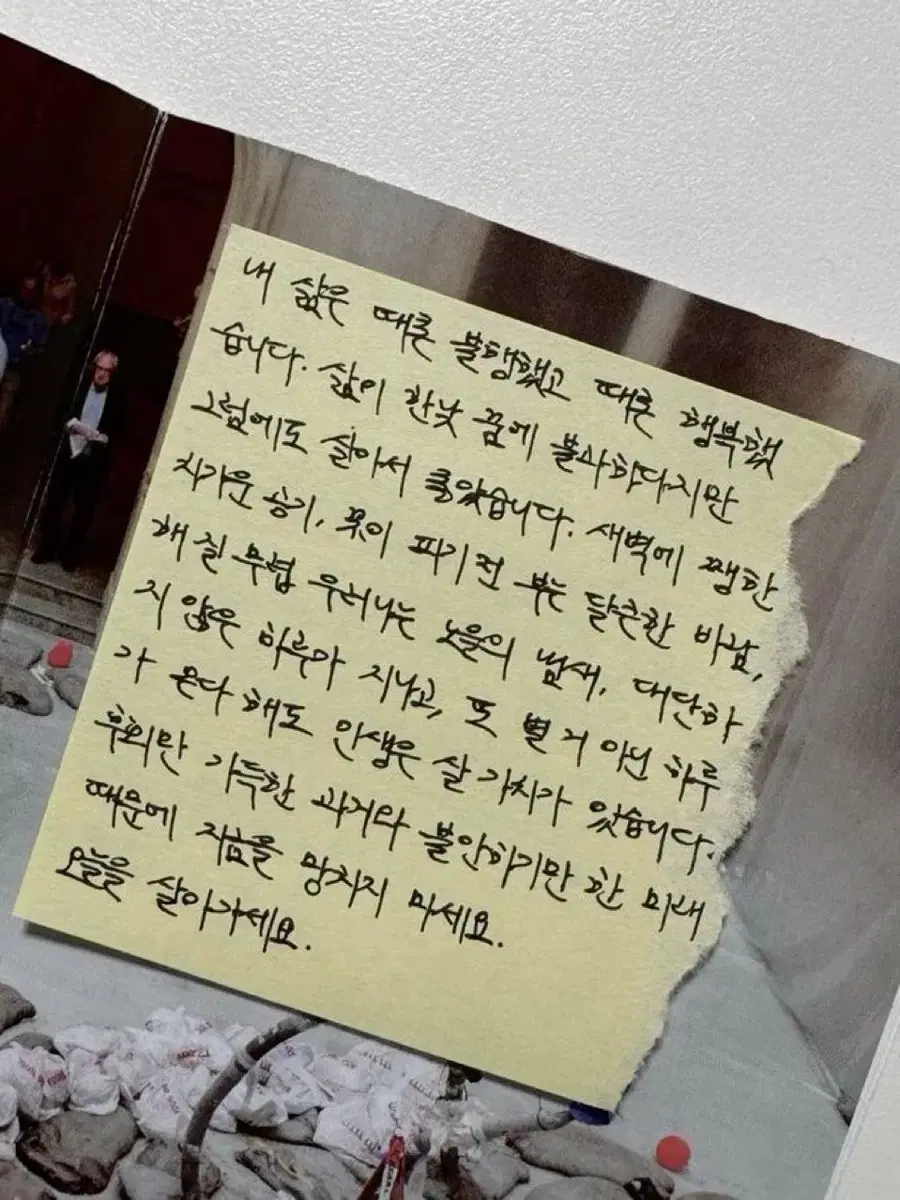 내 삶은 때론 불행했고 때론 행복했
습니다. 삶이 한낮 꿈에 불과하다지만
그럼에도 살아서 좋았습니다. 새벽에 쨍한
차가운 공기, 꽃이 피기 전 부는 달큰한 바람,
해 질 무렵 우러나는 노을의 냄새, 대단하
지 않은 하루가 지나고, 또 별 거 아닌 하루
가 온다 해도 인생은 살 가치가 있습니다.
후회만 가득한 과거와 불안하기만 한 미래
때문에 지금을 망치지 마세요.
오늘을 살아가세요.